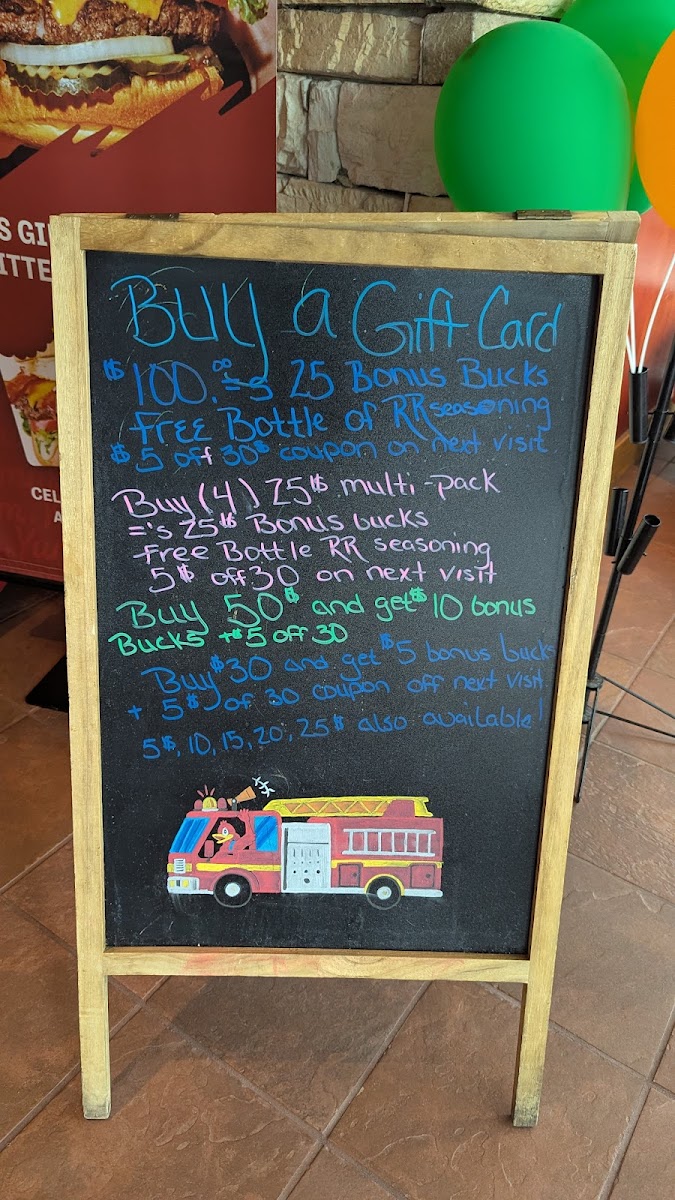 S GI
ITTE
CEL
A
Buy a Gift Card
$100.00 ='s 25 Bonus Bucks
Free Bottle of RR seasoning
$5 off 30$ coupon on next visit
Buy (4) 25$ multi-pack
='s 25$ Bonus bucks
Free Bottle RR seasoning
5$ off 30 on next visit
Buy 50$ and get $10 bonus
Bucks + $5 off 30
Buy $30 and get $5 bonus buck
+ 5$ of 30 coupon off next visit
5$, 10, 15, 20, 25$ also available!